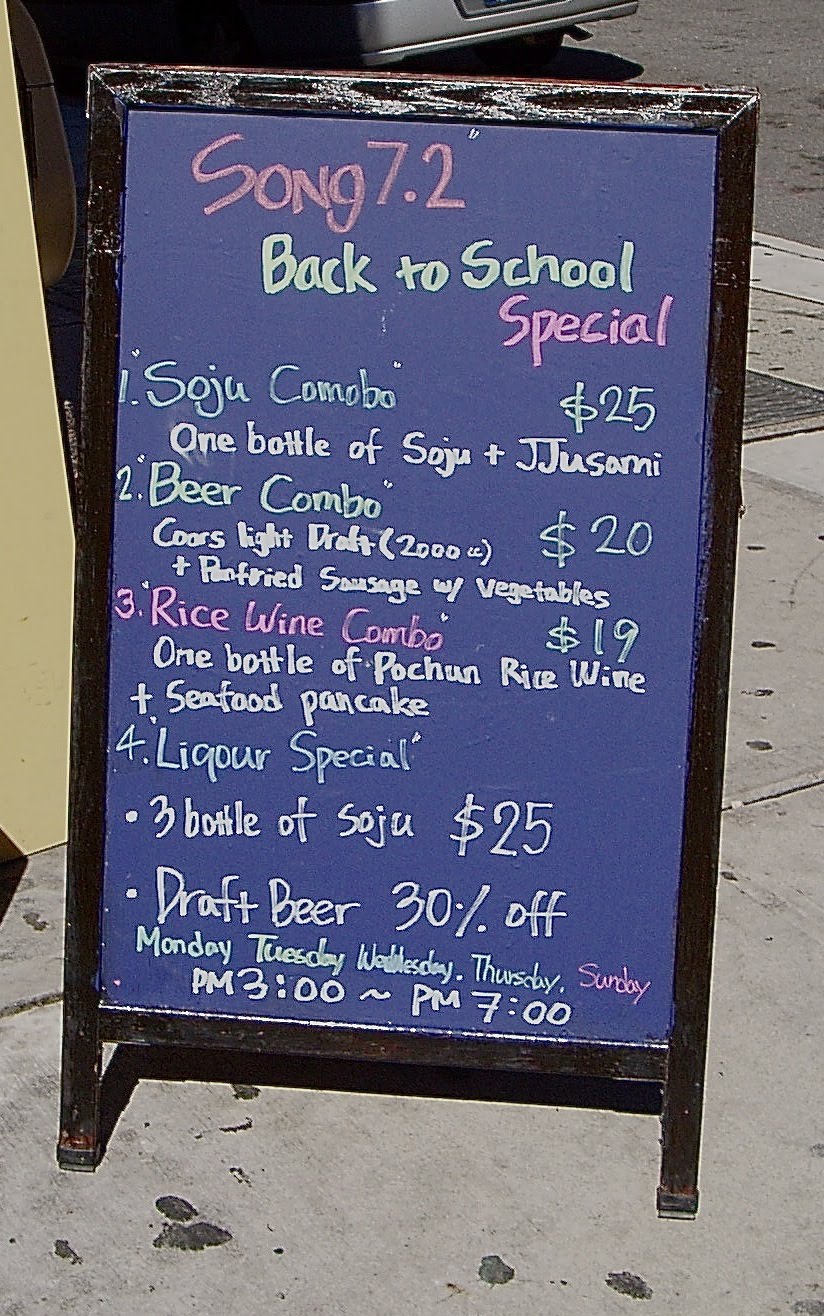 Song 7.2"
Back to School
Special
1. "Soju Comobo" $25
One bottle of Soju + JJusami
2. "Beer Combo"
Coors light Draft (2000 cc) $20
+ Panfried Sausage w/ Vegetables
3. "Rice Wine Combo" $19
One bottle of Pochun Rice Wine
+ Seafood pancake
4. "Liqour Special"
• 3 bottle of soju $25
• Draft Beer 30% off
Monday Tuesday Weddesday. Thursday. Sunday
PM 3:00 ~ PM 7:00